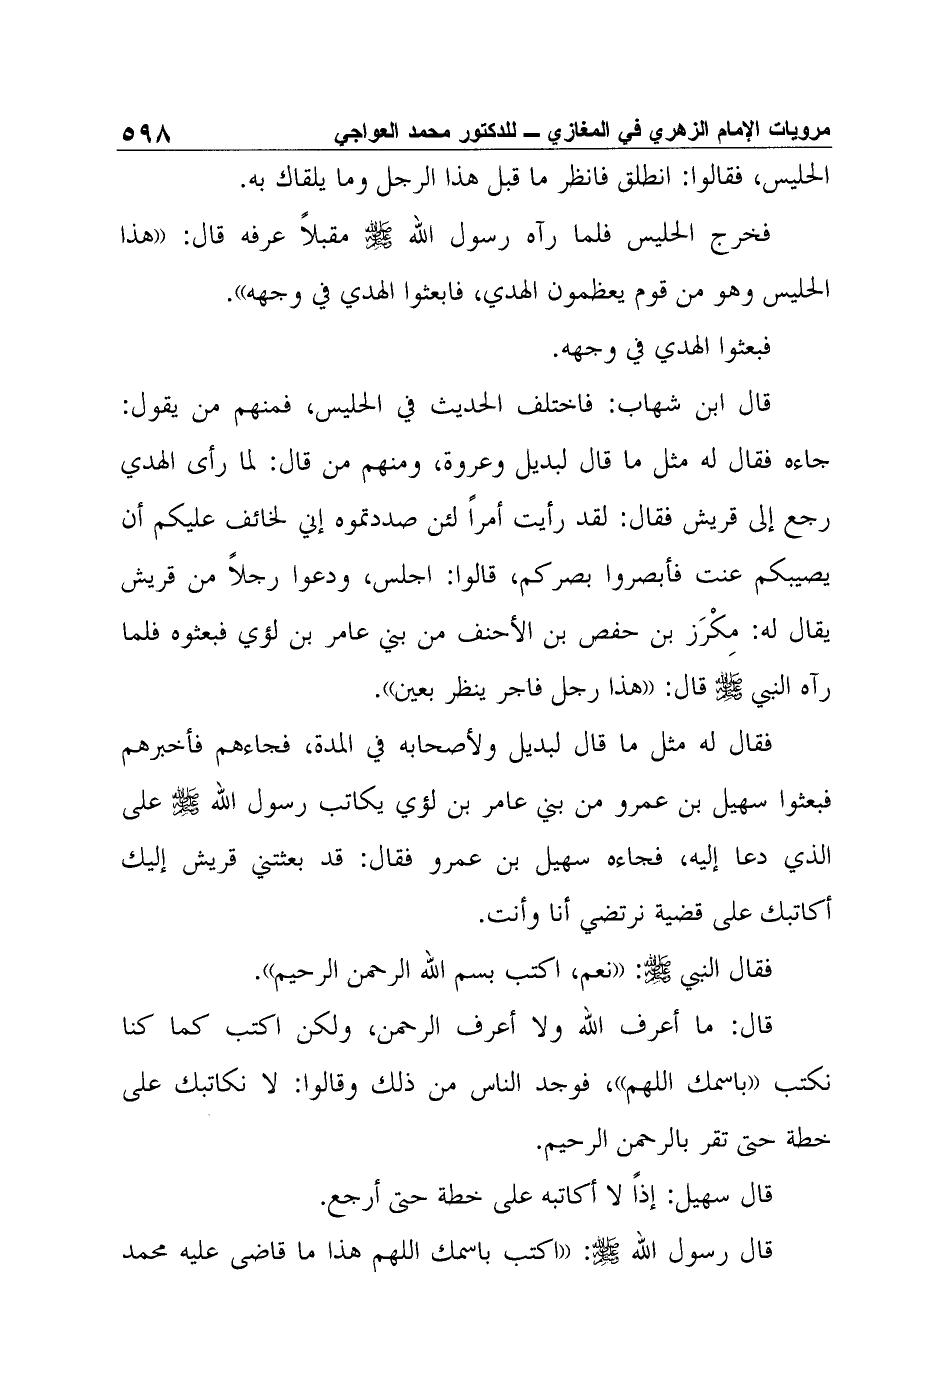 مرويات الإمام الزهري في المغازي ــ للدكتور محمد العواجي ٥٩٨
الحليس، فقالوا: انطلق فانظر ما قبل هذا الرجل وما يلقاك به.
فخرج الحليس فلما رآه رسول الله ﷺ مقبلاً عرفه قال: ((هذا
الحليس وهو من قوم يعظمون الهدي، فابعثوا الهدي في وجهه)).
فبعثوا الهدي في وجهه.
قال ابن شهاب: فاختلف الحديث في الحليس، فمنهم من يقول:
جاءه فقال له مثل ما قال لبديل وعروة، ومنهم من قال: لما رأى الهدي
رجع إلى قريش فقال: لقد رأيت أمراً لئن صددتموه إني لخائف عليكم أن
يصيبكم عنت فأبصروا بصركم، قالوا: اجلس، ودعوا رجلاً من قريش
يقال له: مِكْرَز بن حفص بن الأحنف من بني عامر بن لؤي فبعثوه فلما
رآه النبي ﷺ قال: ((هذا رجل فاجر ينظر بعين)).
فقال له مثل ما قال لبديل ولأصحابه في المدة، فجاءهم فأخبرهم
فبعثوا سهيل بن عمرو من بني عامر بن لؤي يكاتب رسول الله ﷺ على
الذي دعا إليه، فجاءه سهيل بن عمرو فقال: قد بعثتني قريش إليك
أكاتبك على قضية نرتضي أنا وأنت.
فقال النبي ﷺ: ((نعم، اكتب بسم الله الرحمن الرحيم)).
قال: ما أعرف الله ولا أعرف الرحمن، ولكن اكتب كما كنا
نكتب ((باسمك اللهم))، فوجد الناس من ذلك وقالوا: لا نكاتبك على
خطة حتى تقر بالرحمن الرحيم.
قال سهيل: إذاً لا أكاتبه على خطة حتى أرجع.
قال رسول الله ﷺ: ((اكتب باسمك اللهم هذا ما قاضى عليه محمد